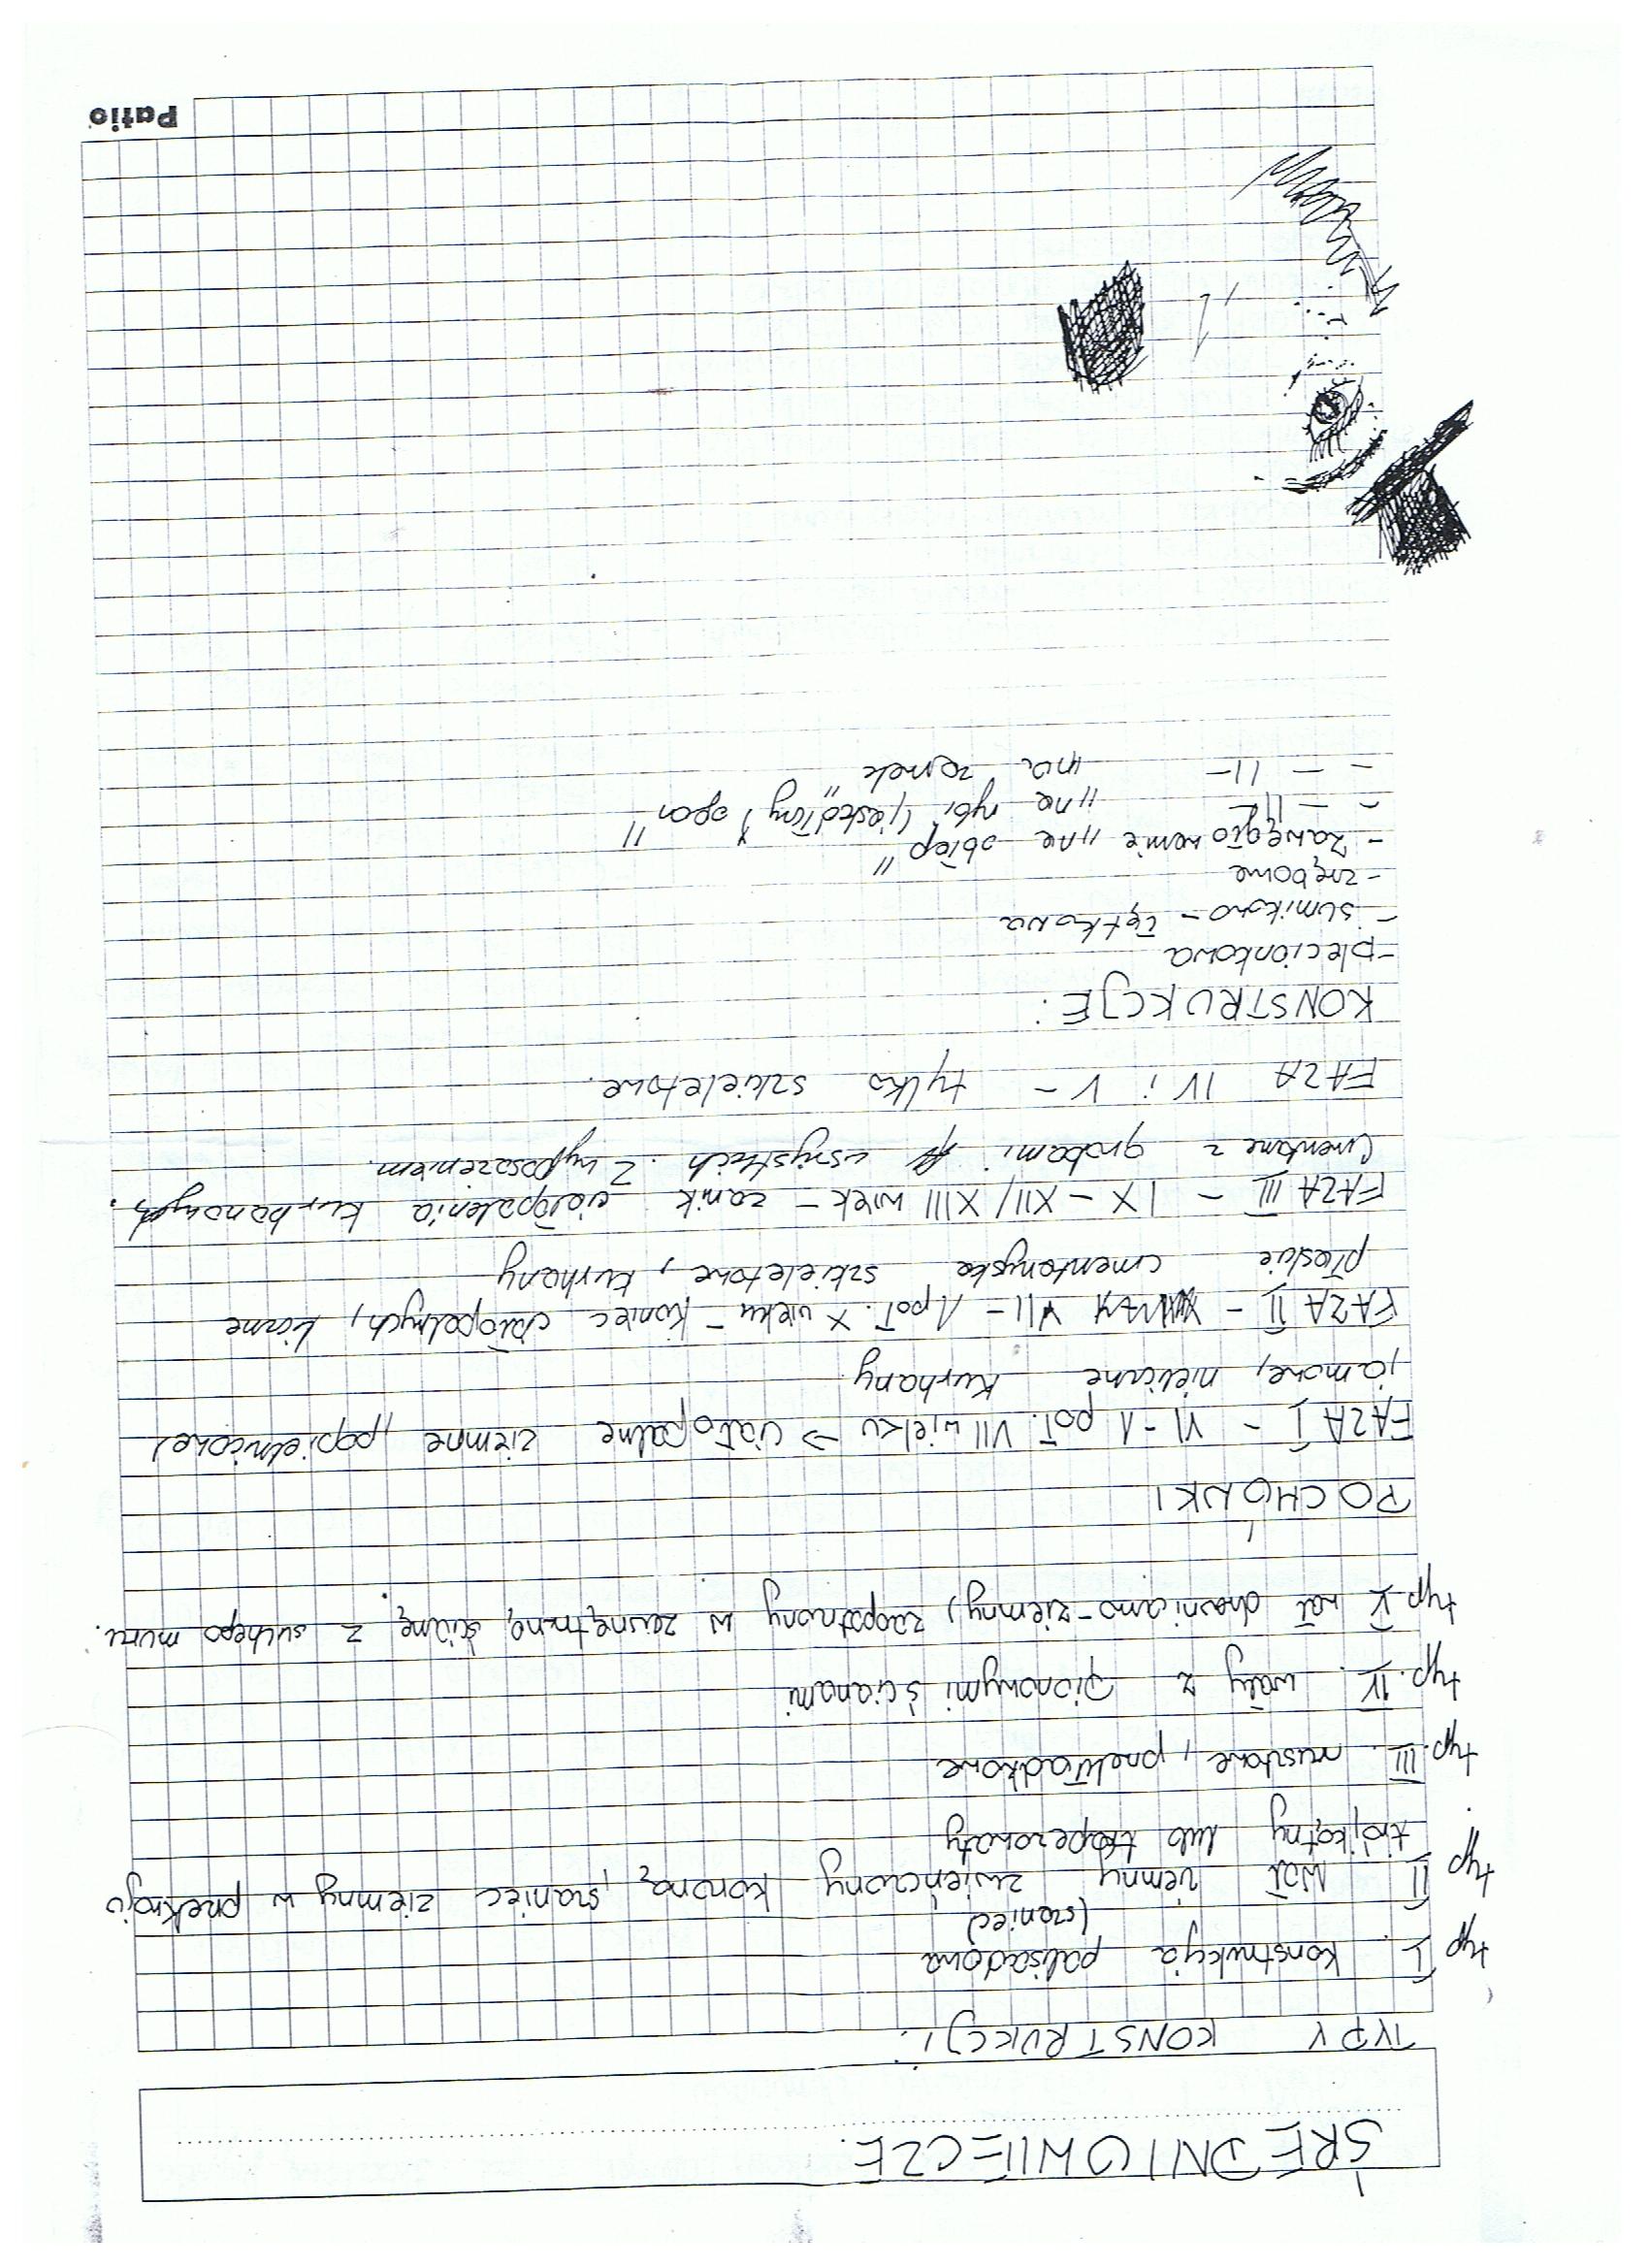 ŚREDNIOWIECZE.
TYPY KONSTRUKCJI:
typ I. Konstrukcja palisadowa
(szaniec)
typ II Wał ziemny zwieńczony koroną, szaniec ziemny w przekroju
trójkątny lub trapezowaty
typ. III. rusztowe, przekładkowe
typ. IV. wały z pionowymi ścianami
typ. V wał drewniano-ziemny, zaopatrzony w zewnętrzną ścianę z suchego muru.
POCHÓWKI
FAZA I - VI - 1 poł. VII wieku => ciałopalne ziemne, popielnicowe,
jamowe, nieliczne kurhany
FAZA II - VII - 1 poł. X wieku - koniec ciałopalnych, liczne
płaskie cmentarzyska szkieletowe, kurhany
FAZA III - IX - XII/XIII wiek - zanik ciałopalenia kurhanowych,
Cmentarze z grobami z wyposażeniem.
FAZA IV i V - tylko szkieletowe.
KONSTRUKCJE:
- plecionkowa
- sumikowo - łątkowa
- zrębowe
- zawęgłowanie "na obłap"
- -||- "na rybi (jaskółczy) ogon"
- -||- "na zamek
Patio